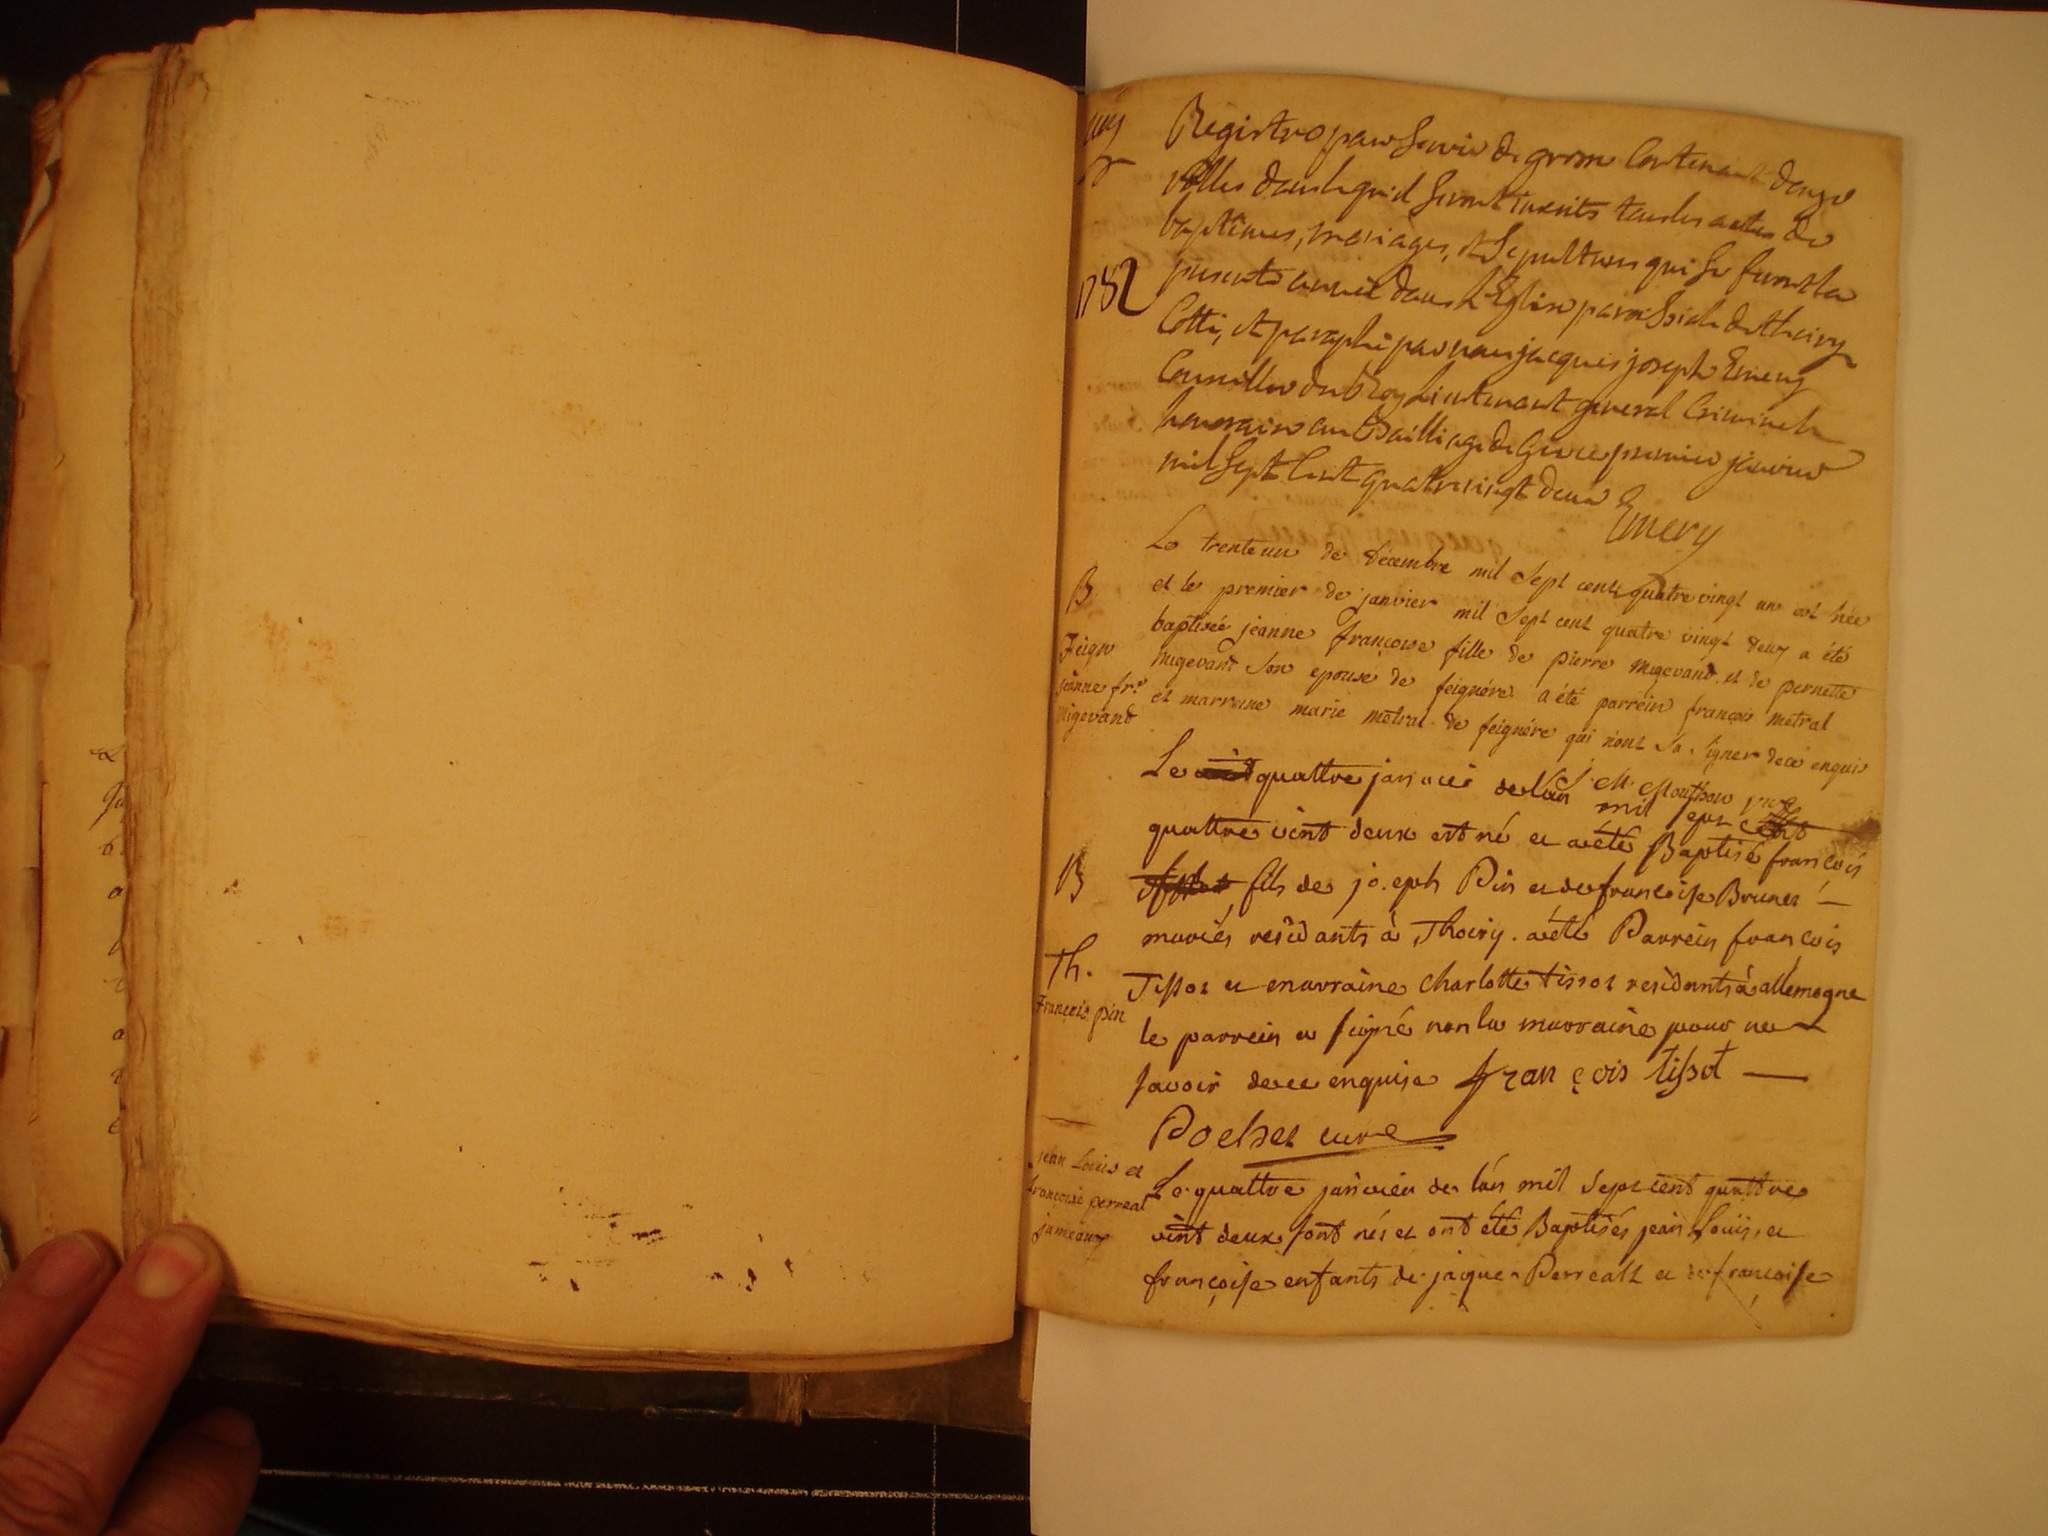 Registre pour servir de grosse Contenant douze
rolles dans lequel seront inserits tous les actes de
baptêmes, mariages, et Sepultures qui se feront la
1782
presente année dans L'Eglise paroissiale de thoiry
Cotté, et paraphé par nous jacques joseph Emery
Conseiller du Roy Lieutenant general Criminel
honoraire au Bailliage de Gex ce premier janvier
mil sept Cent quatre vingt deux
Emery
Le trente un de Décembre mil sept cent quatre vingt un est née
B
et le premier de janvier mil sept cent quatre vingt deux a été
baptisée jeanne francoise fille de pierre migevand et de pernette
Feign
migevand son epouse de feignére a été parrein françois metral
jeanne fr.se
Migevand
et marraine marie metral de feignére qui n'ont sa signer de ce enquis
J. M. Mouthon
Le quattre janvier de l'an mil sept cent
quattre vint deux est né et a été Baptisé francois
B
fils de joseph Pin et de francoise Brunet
mariés residants à Thoiry. a été Parrein francois
Th.
François pin
Tissot et en marraine Charlotte tissot residants à allemogne
le parrein a signé non la marraine pour ne
savoir de ce enquise françois tissot
Pochet curé
jean Louis et
francoise perreal
jumeaux
Le quattre janvier de l'an mil sept cent quattre
vint deux sont nés et ont été Baptisés jean Louis et
françoise enfants de jaque Perrealt et de françoise